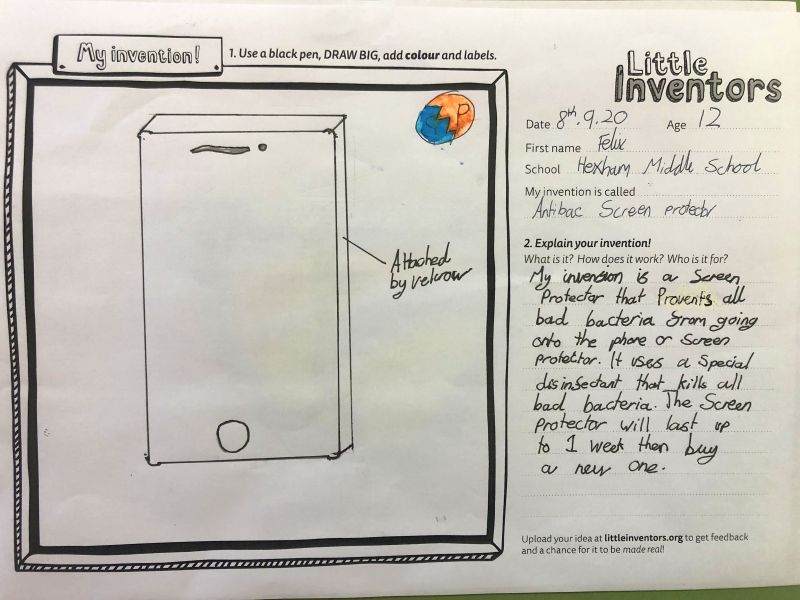 My invention!
1. Use a black pen, DRAW BIG, add colour and labels.
Attached
by velcrow
Little
Inventors
Date 8th.9.20 Age 12
First name Felix
School Hexham Middle School
My invention is called
Antibac Screen protector
2. Explain your invention!
What is it? How does it work? Who is it for?
My invension is a Screen
Protector that Provents all
bad bacteria from going
onto the phone or Screen
protector. It uses a Special
disinfectant that kills all
bad bacteria. The Screen
Protector will last up
to 1 week then buy
a new one.
Upload your idea at littleinventors.org to get feedback
and a chance for it to be made real!